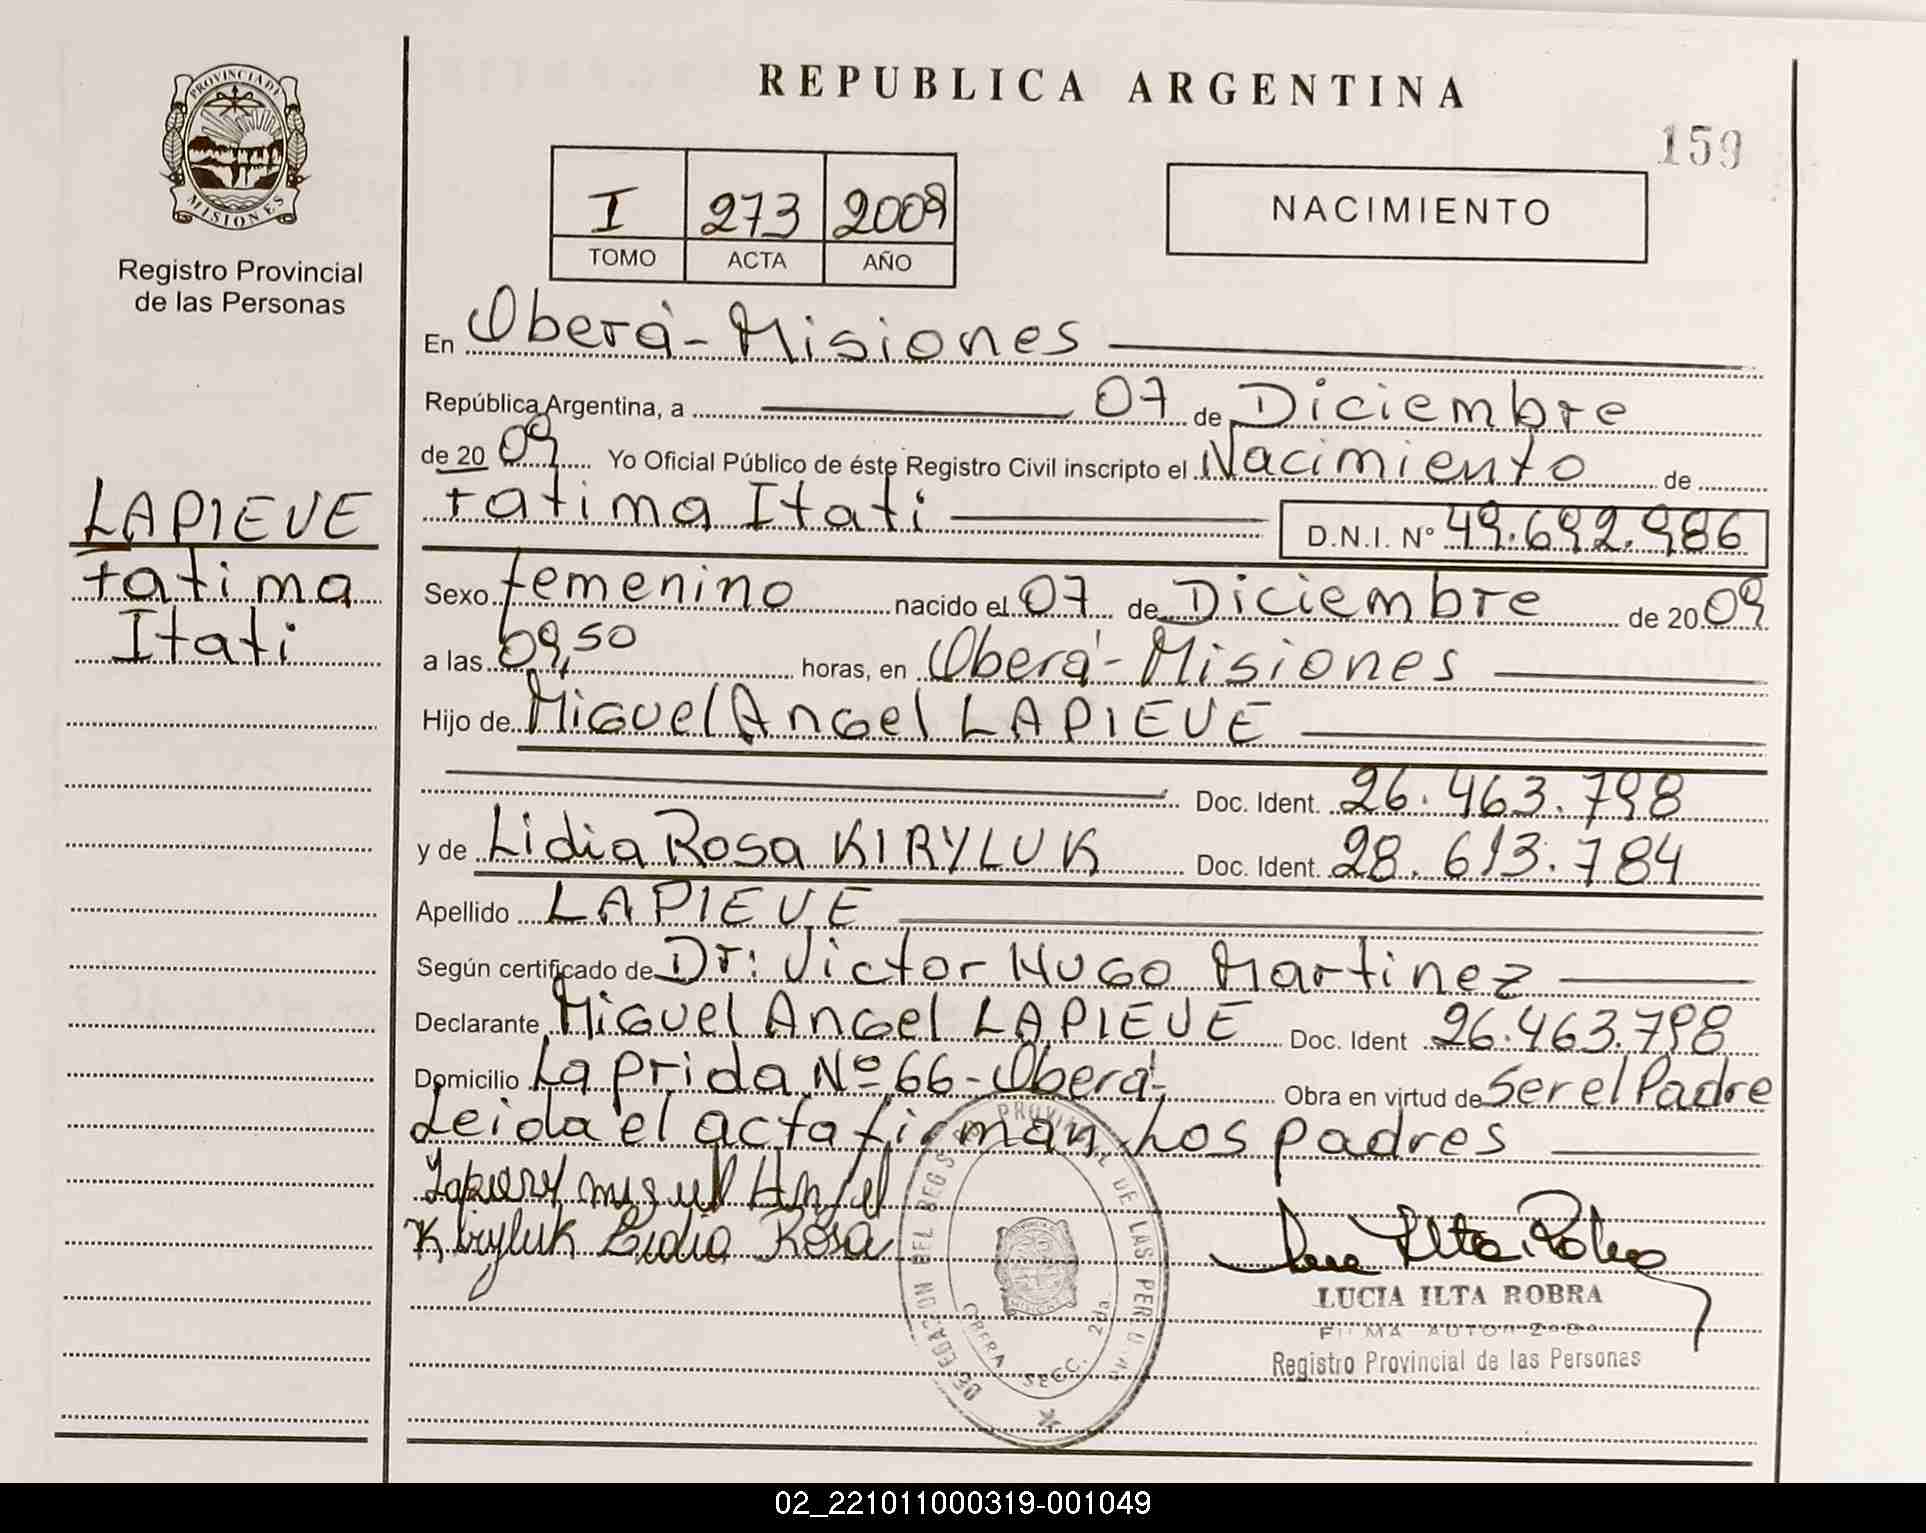 REPUBLICA ARGENTINA
159
PROVINCIA DE
MISIONES
Registro Provincial
de las Personas
I 273 2009
TOMO ACTA AÑO
NACIMIENTO
En Oberá - Misiones
República Argentina, a 07 de Diciembre
de 20 09 Yo Oficial Público de éste Registro Civil inscripto el Nacimiento de
Fatima Itati D.N.I. Nº 49.692.986
LAPIEVE
Fatima
Itati
Sexo femenino nacido el 07 de Diciembre de 20 09
a las 09,50 horas, en Oberá - Misiones
Hijo de Miguel Angel LAPIEVE
Doc. Ident. 26.463.798
y de Lidia Rosa KIRYLUK Doc. Ident. 28.613.784
Apellido LAPIEVE
Según certificado de Dr: Victor Hugo Martinez
Declarante Miguel Angel LAPIEVE Doc. Ident 26.463.798
Domicilio Laprida Nº 66 - Oberá - Obra en virtud de Ser el Padre
Leida el acta firman Los padres
Miguel Angel
Kiryluk Lidia Rosa
LUCIA ILTA ROBRA
FIRMA AUTORIZADA
Registro Provincial de las Personas
OBERA SECC. 2da
02_221011000319-001049